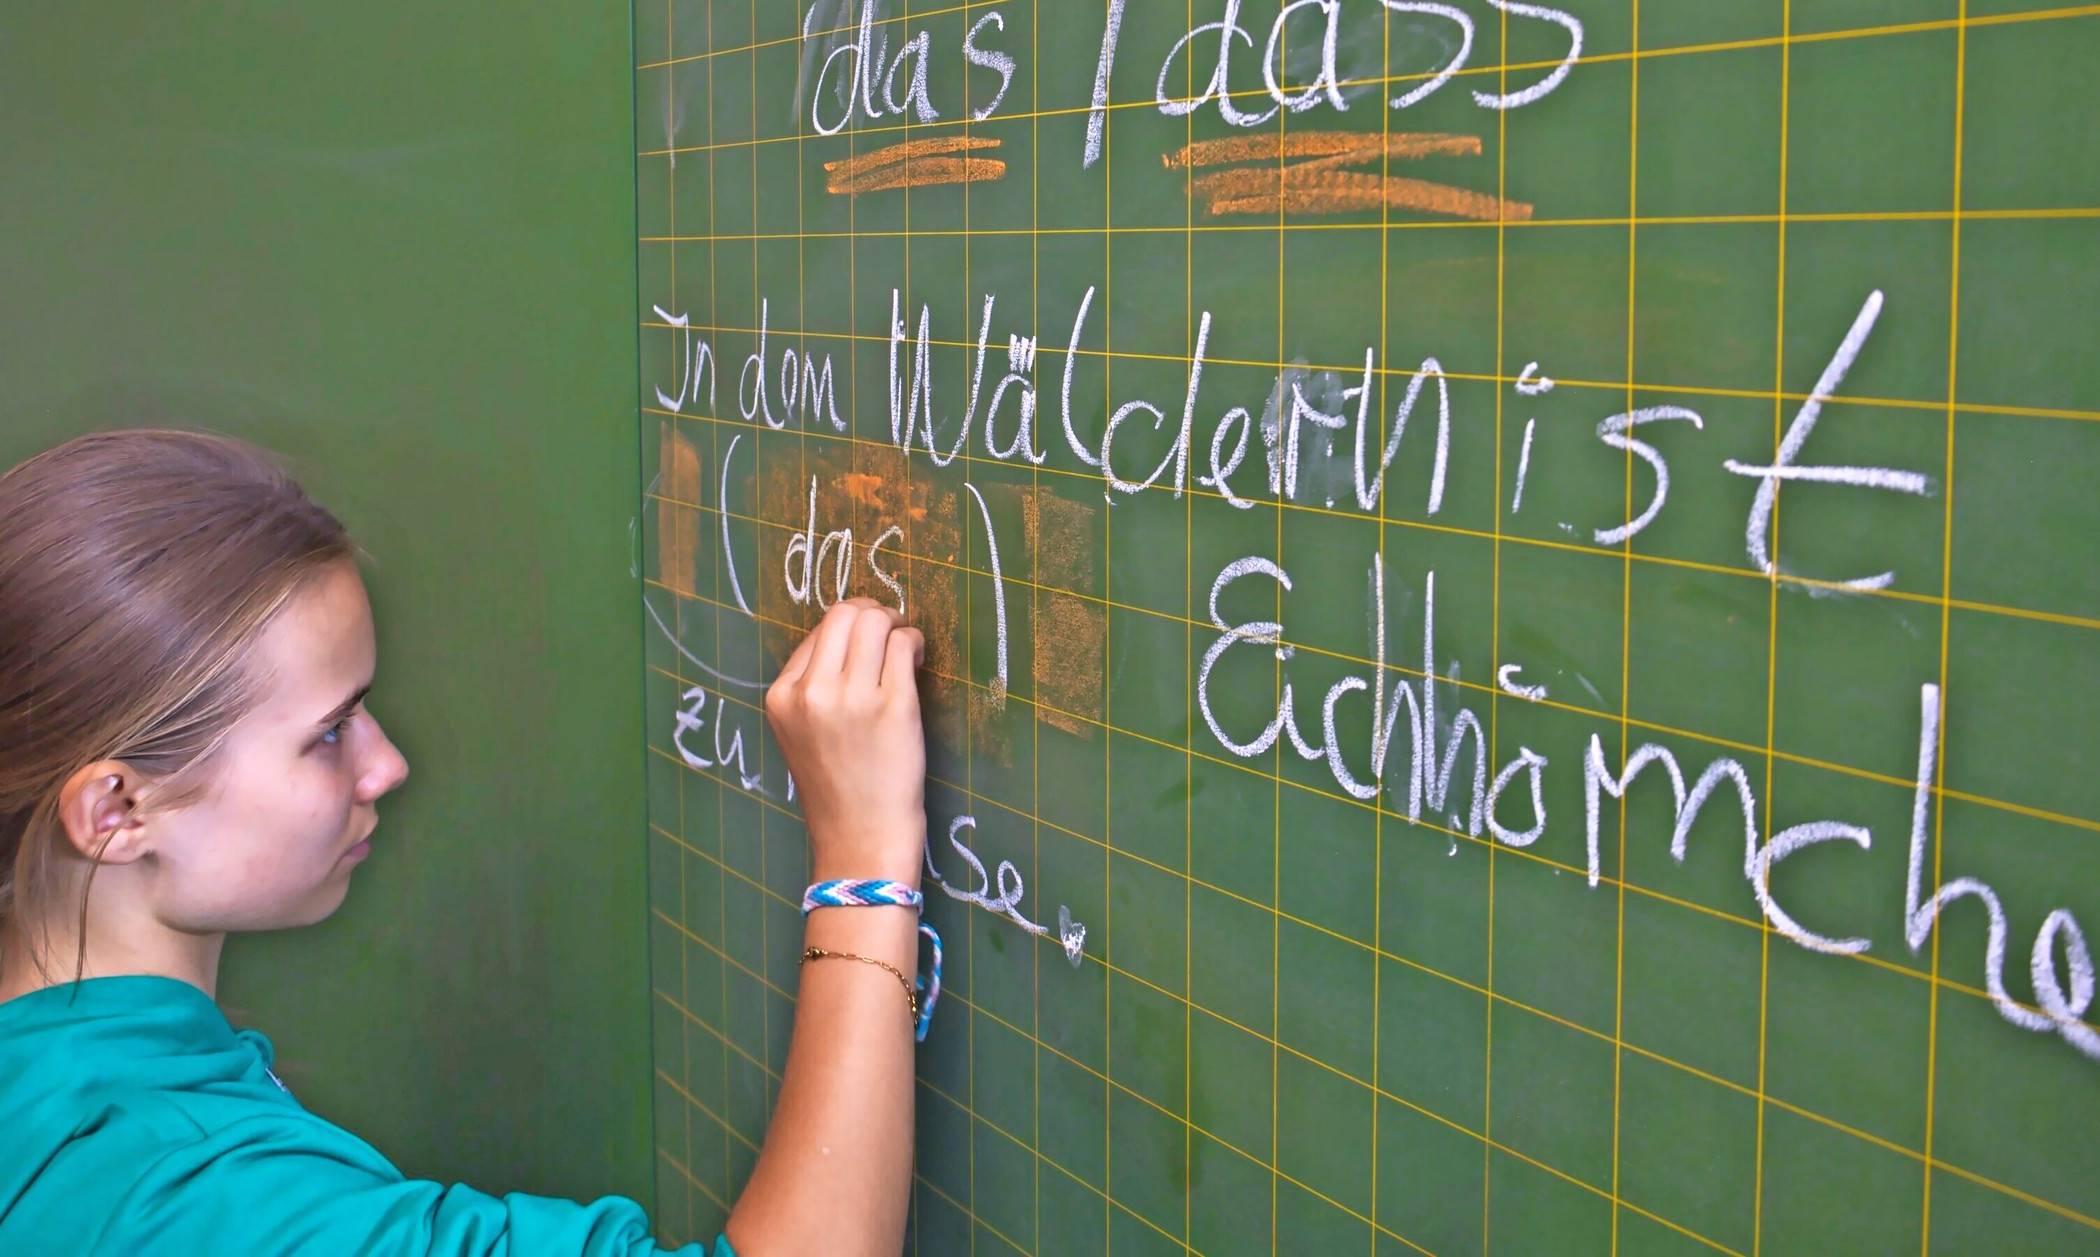 das / dass
In den Wäldern ist
(das) Eichhörnche
zu